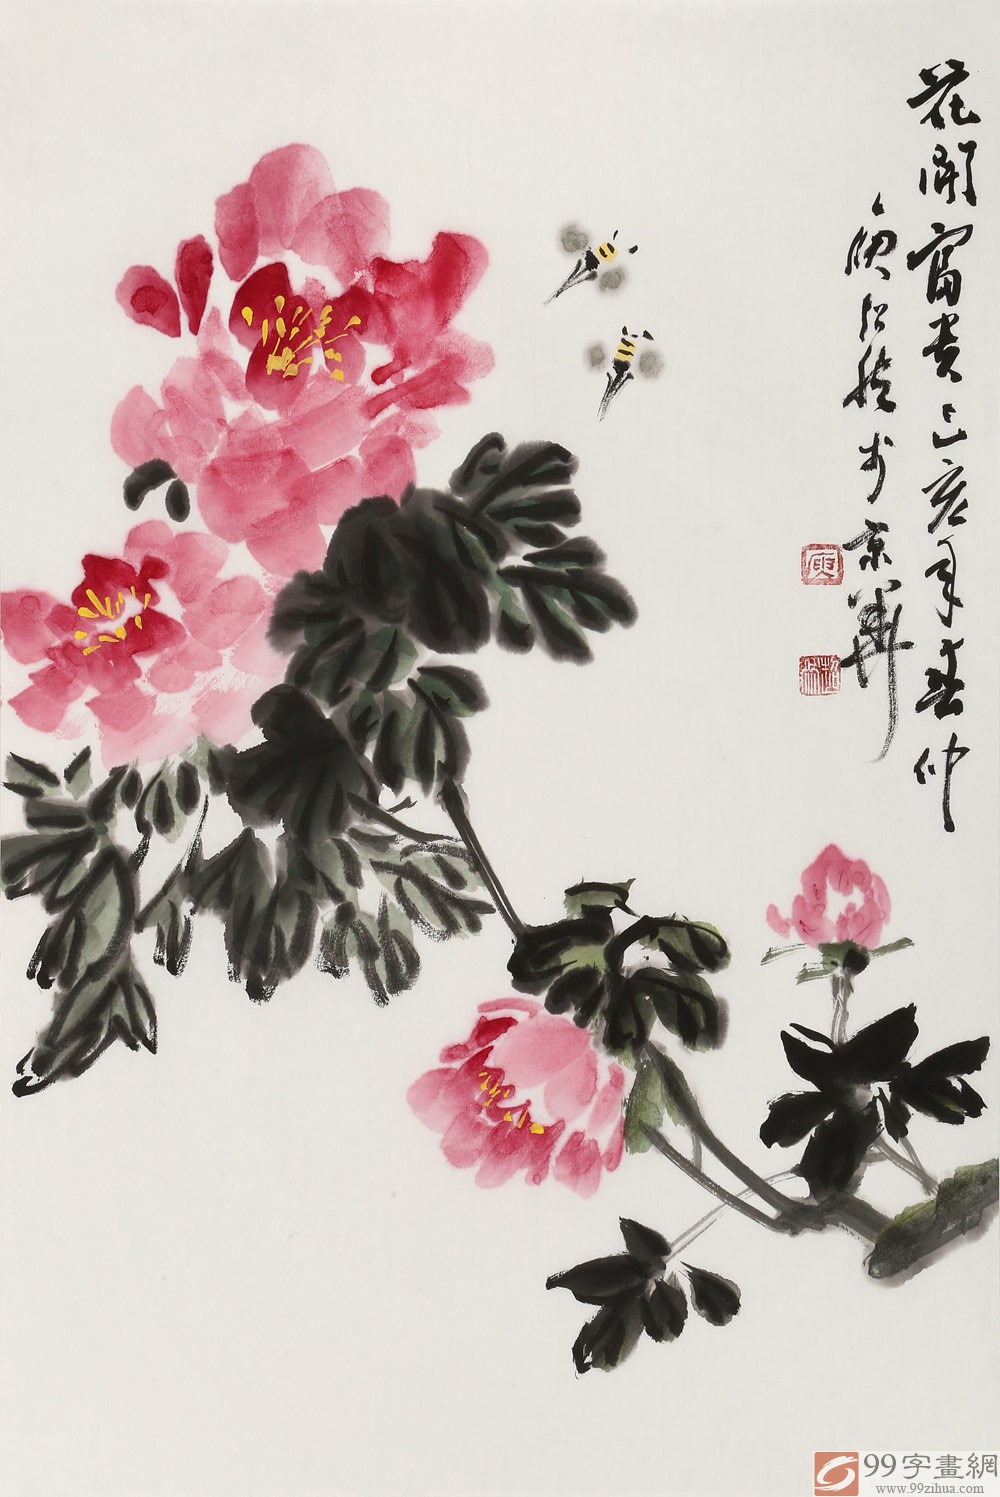 花開富貴己亥年春仲
於京華
99字畫網
www.99zihua.com